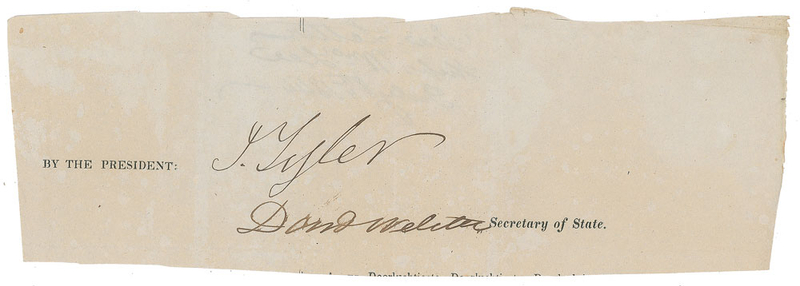 BY THE PRESIDENT: J. Tyler
Danl Webster Secretary of State.